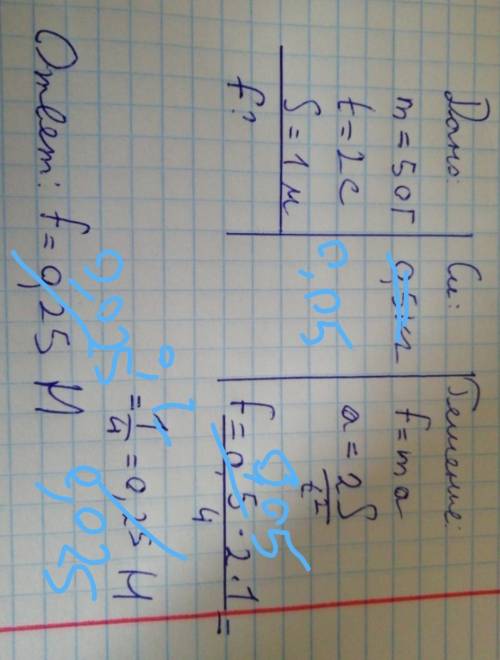 Дано:
m = 50г
t = 2с
S = 1м
f?
Си:
0,05
Решение:
f = ma
a = 2S/t²
f = 0,5 · 2 · 1 / 4 =
0,05
= 1/4 = 0,25 Н
0,1
0,025
Ответ: f = 0,25 Н
0,025